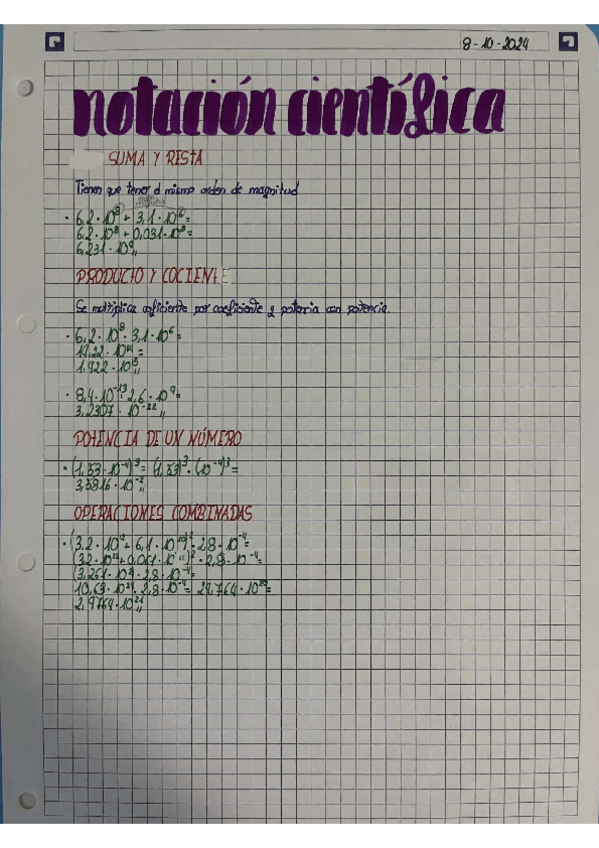 8-10-2024
notación científica
SUMA Y RESTA
Tienen que tener el mismo orden de magnitud
· 6,2 · 10⁸ + 3,1 · 10⁶ =
6,2 · 10⁸ + 0,031 · 10⁸ =
6,231 · 10⁸,,
PRODUCTO Y COCIENTE
Se multiplica coeficiente por coeficiente y potencia con potencia.
· 6,2 · 10⁸ · 3,1 · 10⁶ =
19,22 · 10¹⁴ =
1,922 · 10¹⁵,,
· 8,4 · 10⁻¹³ : 2,6 · 10⁹ =
3,2307 · 10⁻²²,,
POTENCIA DE UN NÚMERO
· (1,53 · 10⁻⁴)³ = (1,53)³ · (10⁻⁴)³ =
3,5816 ·
OPERACIONES COMBINADAS
· (3,2 · 10¹² + 6,1 · 10¹⁰)² · 2,8 · 10⁻⁴ =
(3,2 · 10¹² + 0,061 · 10¹²)² · 2,8 · 10⁻⁴ =
2,8 · 10⁻⁴ =
10,63 · 10²⁴ · 2,8 · 10⁻⁴ = 29,764 · 10²⁰ =
2,9764 · 10²¹,,